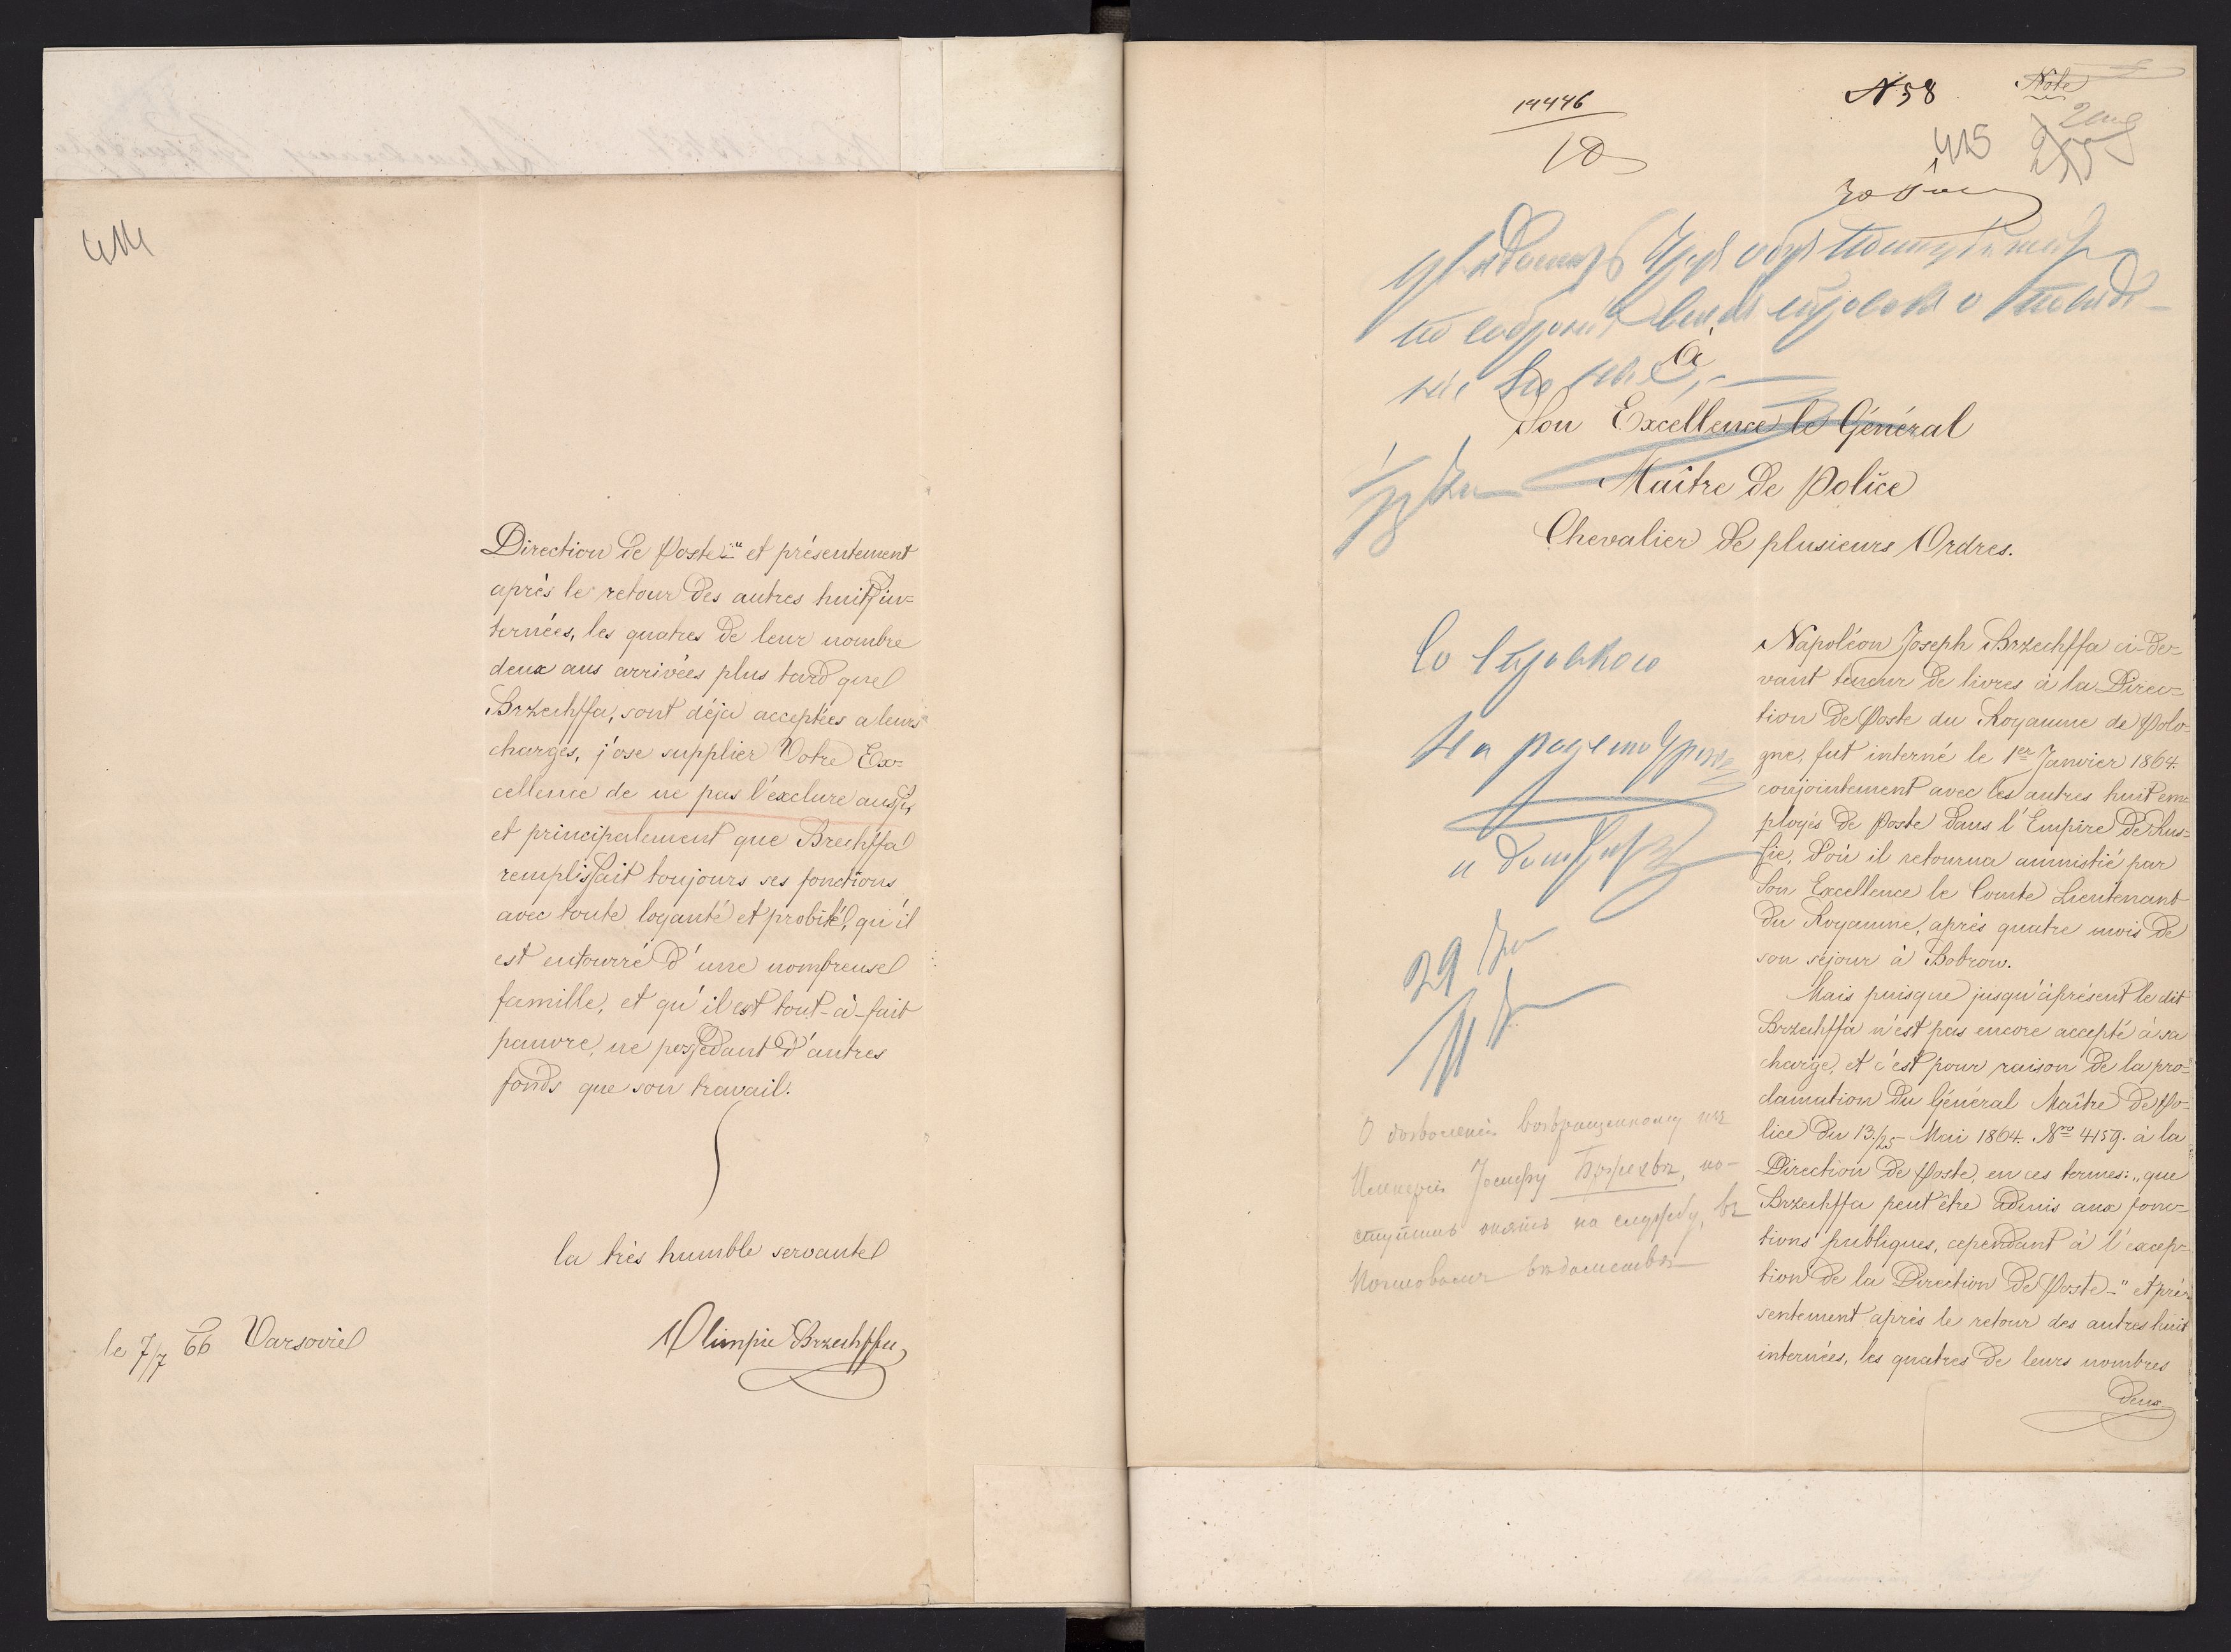 414
Direction de Poste" et présentement
après le retour des autres huit in=
ternées, les quatres de leur nombre
deux ans arrivées plus tard que
Brzechffa, sont déja acceptées a leurs
charges, j'ose supplier Votre Ex=
cellence de ne pas l'exclure aussi,
et principalement que Brechffa
remplissait toujours ses fonctions
avec toute loyauté et probité, qu'il
est entourré d'une nombreuse
famille, et qu'il est tout-à-fait
pauvre, ne possedant d'autres
fonds que son travail.
la très humble servante
le 7/7 66 Varsovie
Olimpie Brzechffa
14446
N 58
Note
415
À
Son Excellence le Général
Maître de Police
Chevalier de plusieurs Ordres.
Napoléon Joseph Brzechffa ci-de=
vant teneur de livres à la Direc=
tion de Poste du Royaume de Polo=
gne, fut interné le 1er Janvier 1864.
conjointement avec les autres huit em=
ployés de Poste dans l'Empire de Rus=
sie, d'où il retourna amnistié par
Son Excellence le Comte Lieutenant
du Royaume, après quatre mois de
son séjour à Bobrow.
Mais puisque jusqu'àprésent le dit
Brzechffa n'est pas encore accepté à sa
charge, et c'est pour raison de la pro=
clamation du Général Maître de Po=
lice du 13/25 Mai 1864. Nro 4159. à la
Direction de Poste, en ces termes: „que
Brzechffa peut être admis aux fonc=
tions publiques, cependant à l'excep=
tion de la Direction de Poste-" et pré=
sentement après le retour des autres huit
internées, les quatres de leurs nombres
deux
О дозволеніи возвращенному изъ
Имперіи Іосифу Бржехвѣ, по-
ступить опять на службу, въ
Почтовомъ вѣдомствѣ